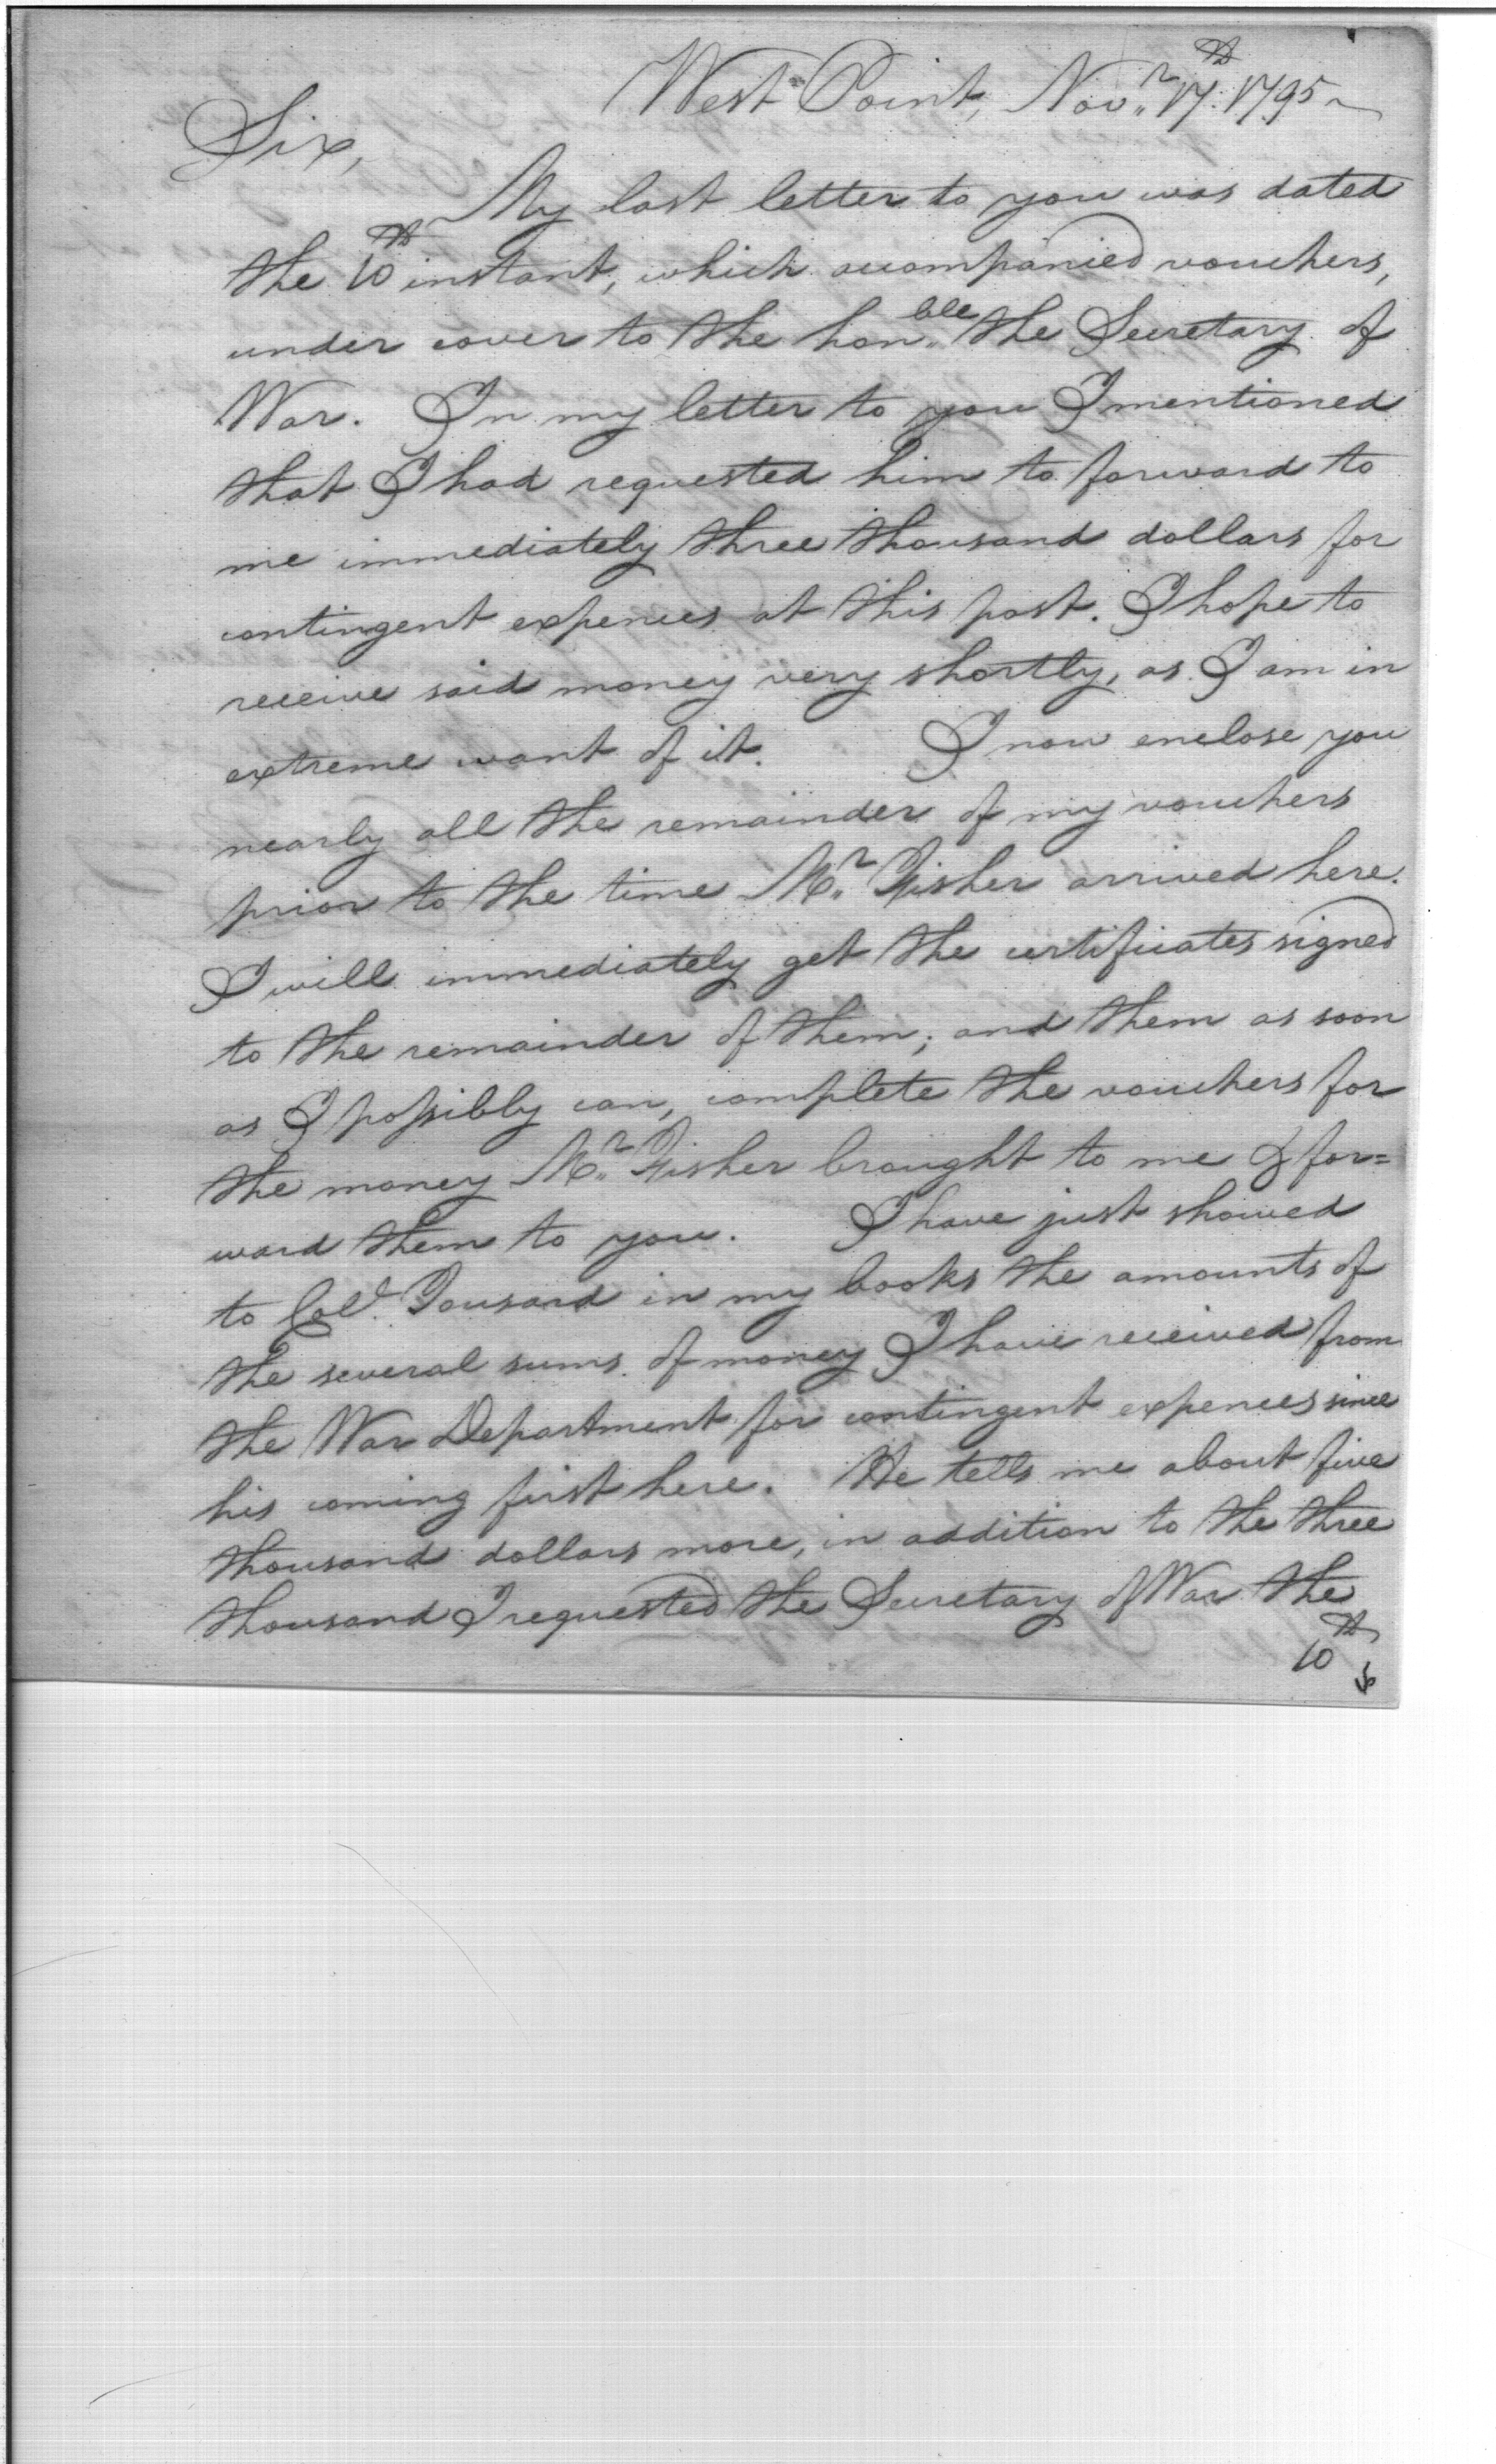 West Point, Novr. 17th. 1795
Sir,
My last letter to you was dated
the 10th instant, which accompanied vouchers,
under cover to the honble. the Secretary of
War. In my letter to you I mentioned
that I had requested him to forward to
me immediately three thousand dollars for
contingent expences at this post. I hope to
receive said money very shortly, as I am in
extreme want of it. I now enclose you
nearly all the remainder of my vouchers
prior to the time Mr. Fisher arrived here.
I will immediately get the certificates signed
to the remainder of them; and them as soon
as I possibly can, complete the vouchers for
the money Mr. Fisher brought to me & for=
ward them to you. I have just showed
to Col. Tousard in my books the amounts of
the several sums of money I have received from
the War Department for contingent expences since
his coming first here. He tells me about five
thousand dollars more, in addition to the three
thousand I requested the Secretary of War the
10th